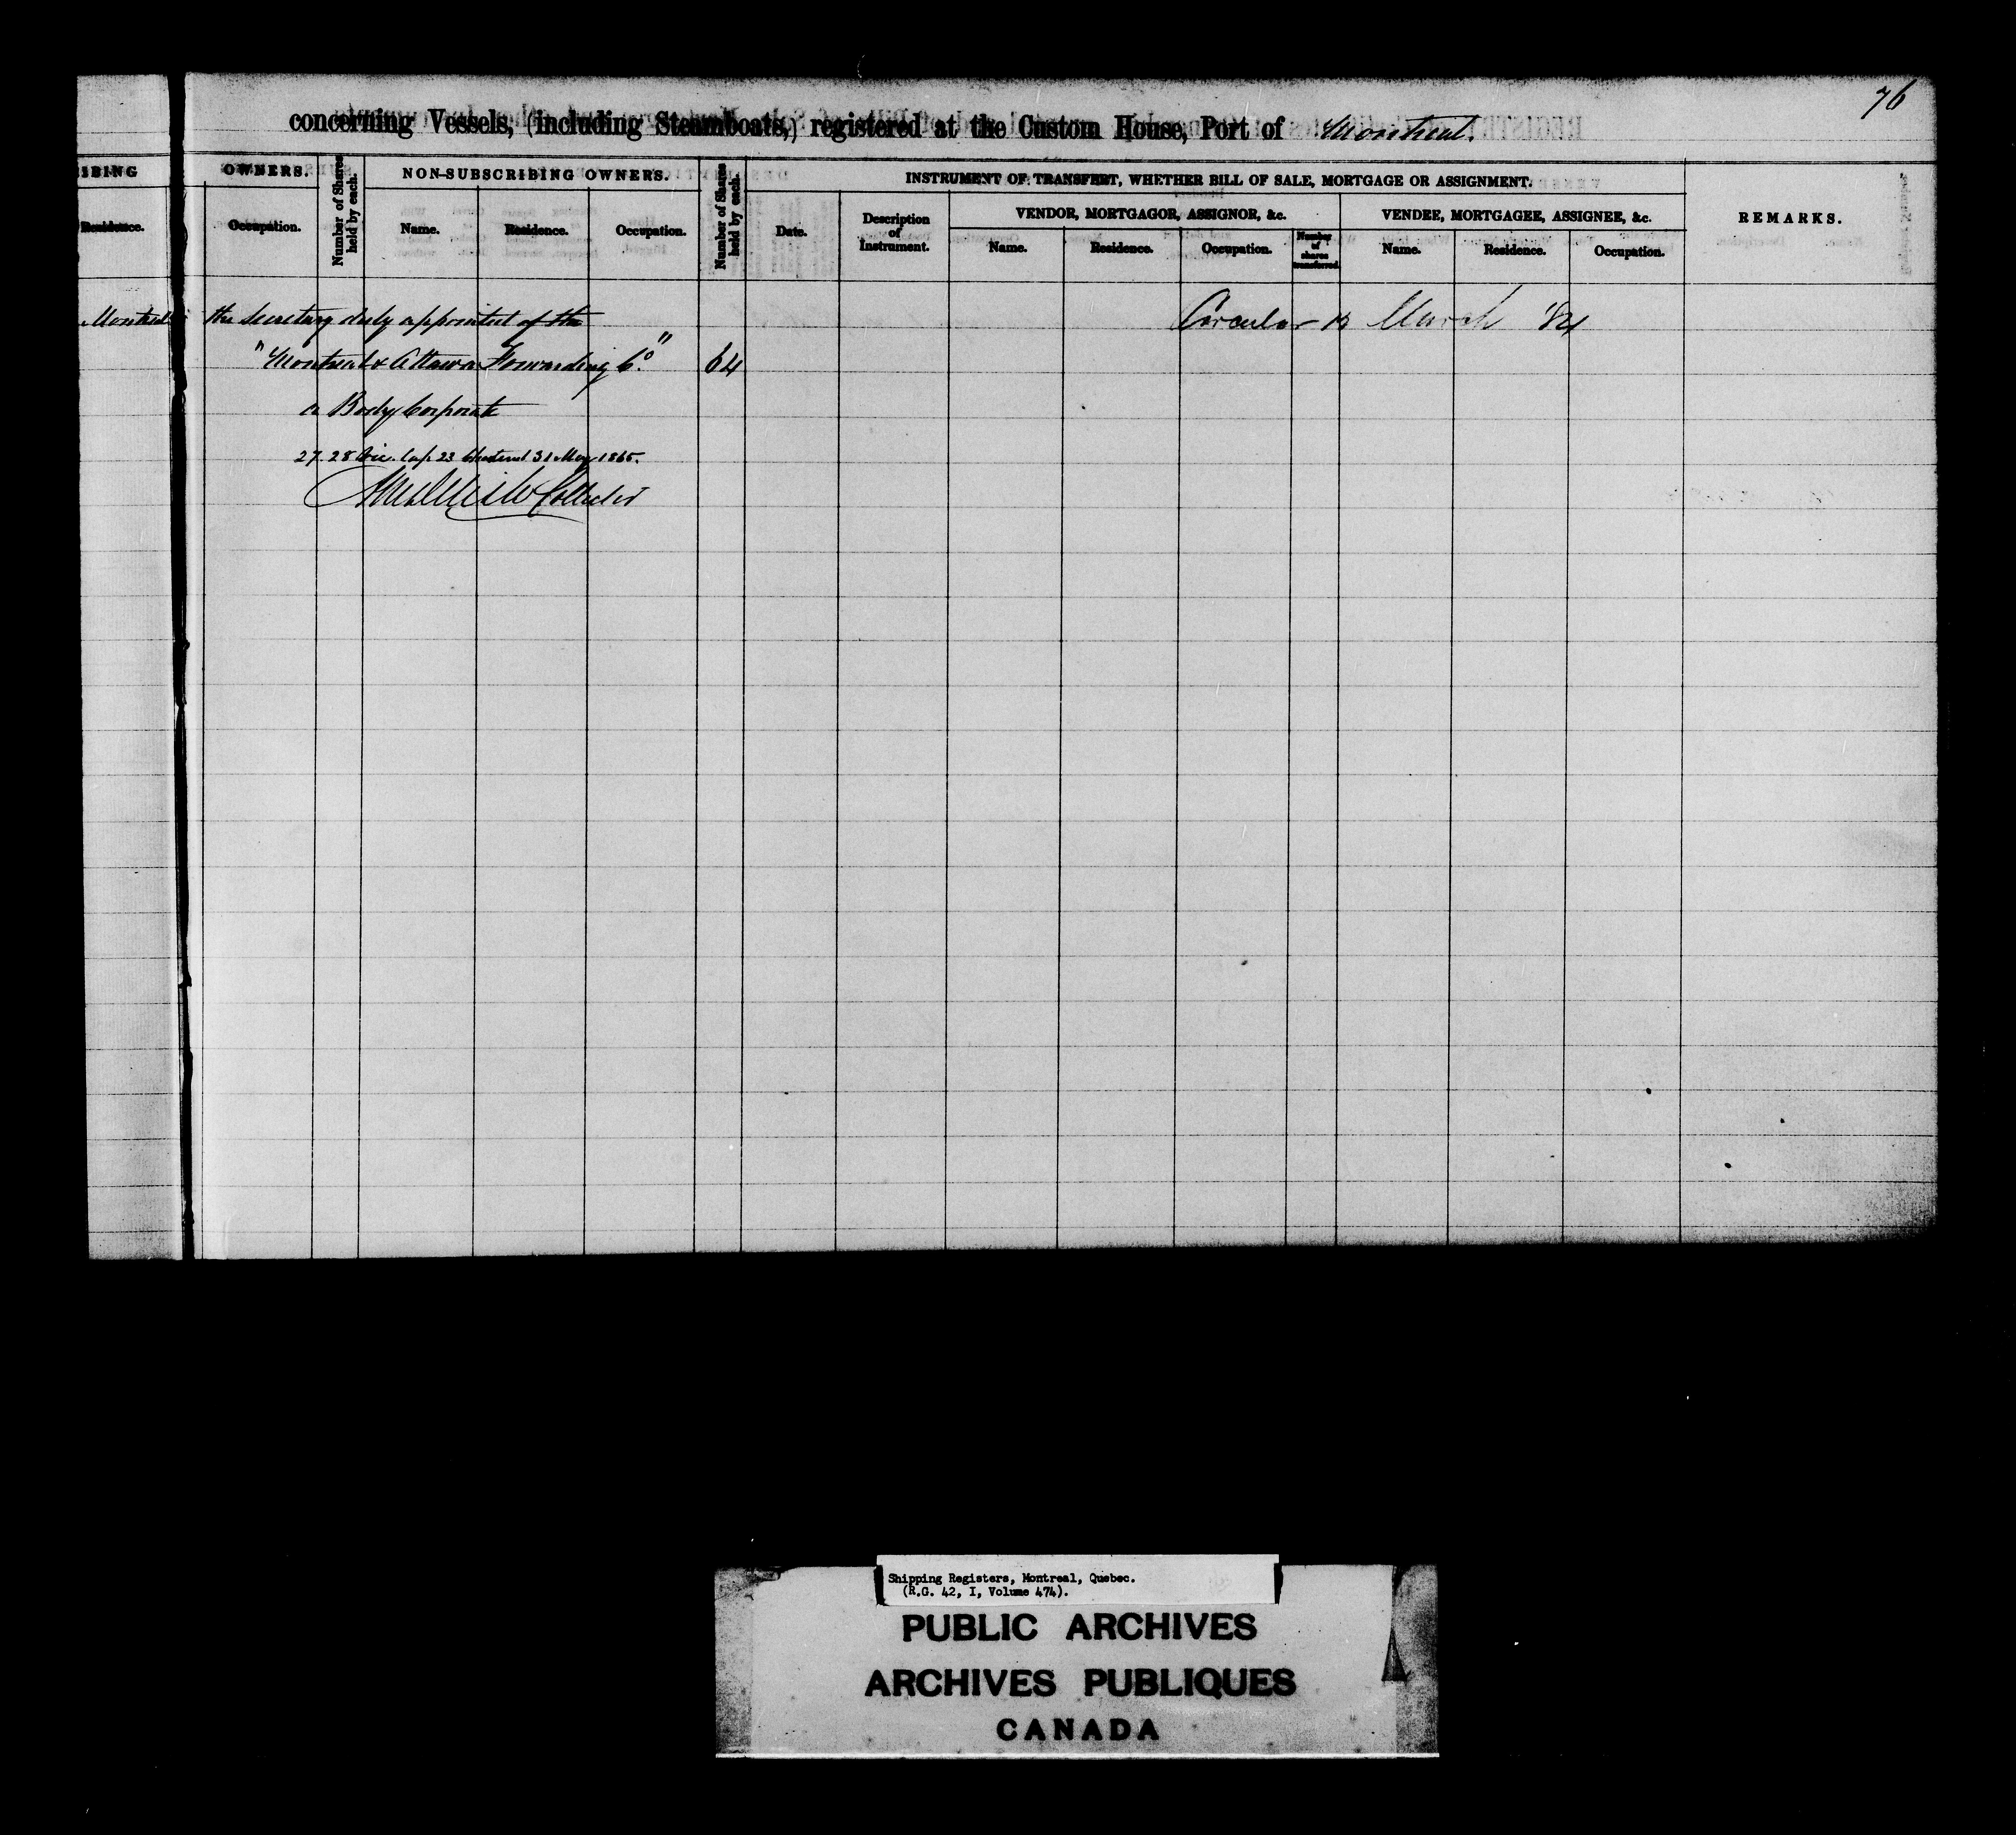 76
concerning Vessels, (including Steamboats,) registered at the Custom House, Port of Montreal.
IBING OWNERS.
Number of Shares held by each.
NON-SUBSCRIBING OWNERS.
Number of Shares held by each.
INSTRUMENT OF TRANSFERT, WHETHER BILL OF SALE, MORTGAGE OR ASSIGNMENT.
VENDOR, MORTGAGOR, ASSIGNOR, &c. VENDEE, MORTGAGEE, ASSIGNEE, &c. REMARKS.
Residence. Occupation. Name. Residence. Occupation. Date. Description of Instrument. Name. Residence. Occupation. Number of shares transferred. Name. Residence. Occupation.
Montreal the Secretary duly appointed of the Circular 13 March '84
"Montreal & Ottawa Forwarding Co." 64
a Body Corporate
27. 28 Vic. Cap. 23 31 May 1865.
Collector
Shipping Registers, Montreal, Quebec.
(R.G. 42, I, Volume 474).
PUBLIC ARCHIVES
ARCHIVES PUBLIQUES
CANADA